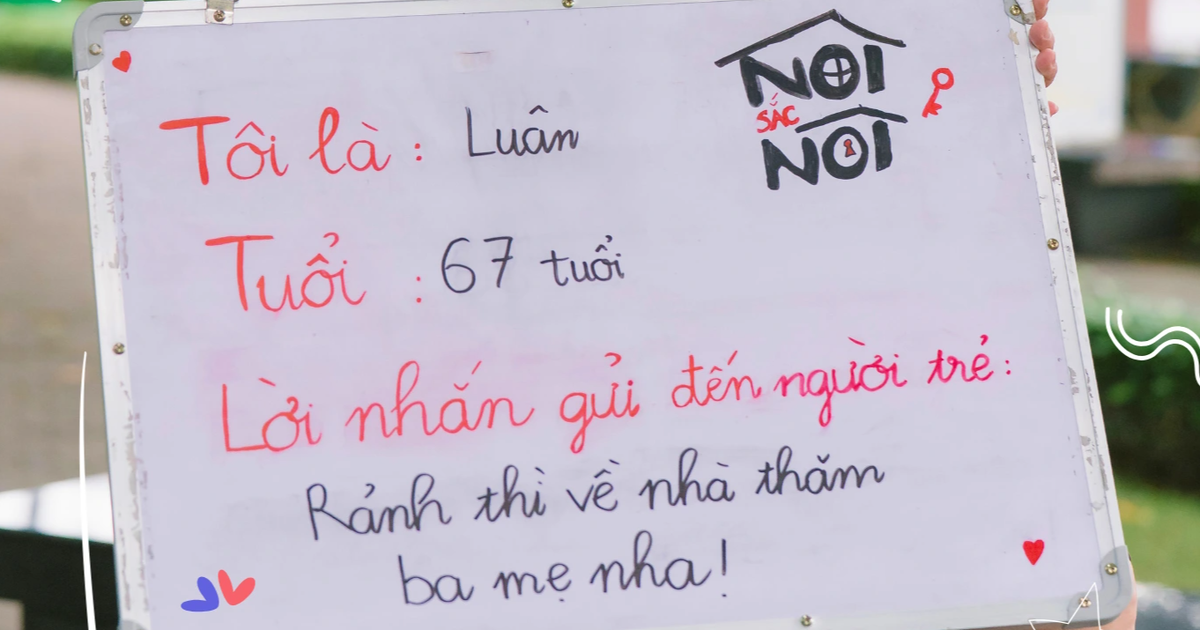 NOI
SẮC
NOI
Tôi là : Luân
Tuổi : 67 tuổi
Lời nhắn gửi đến người trẻ:
Rảnh thì về nhà thăm
ba mẹ nha!